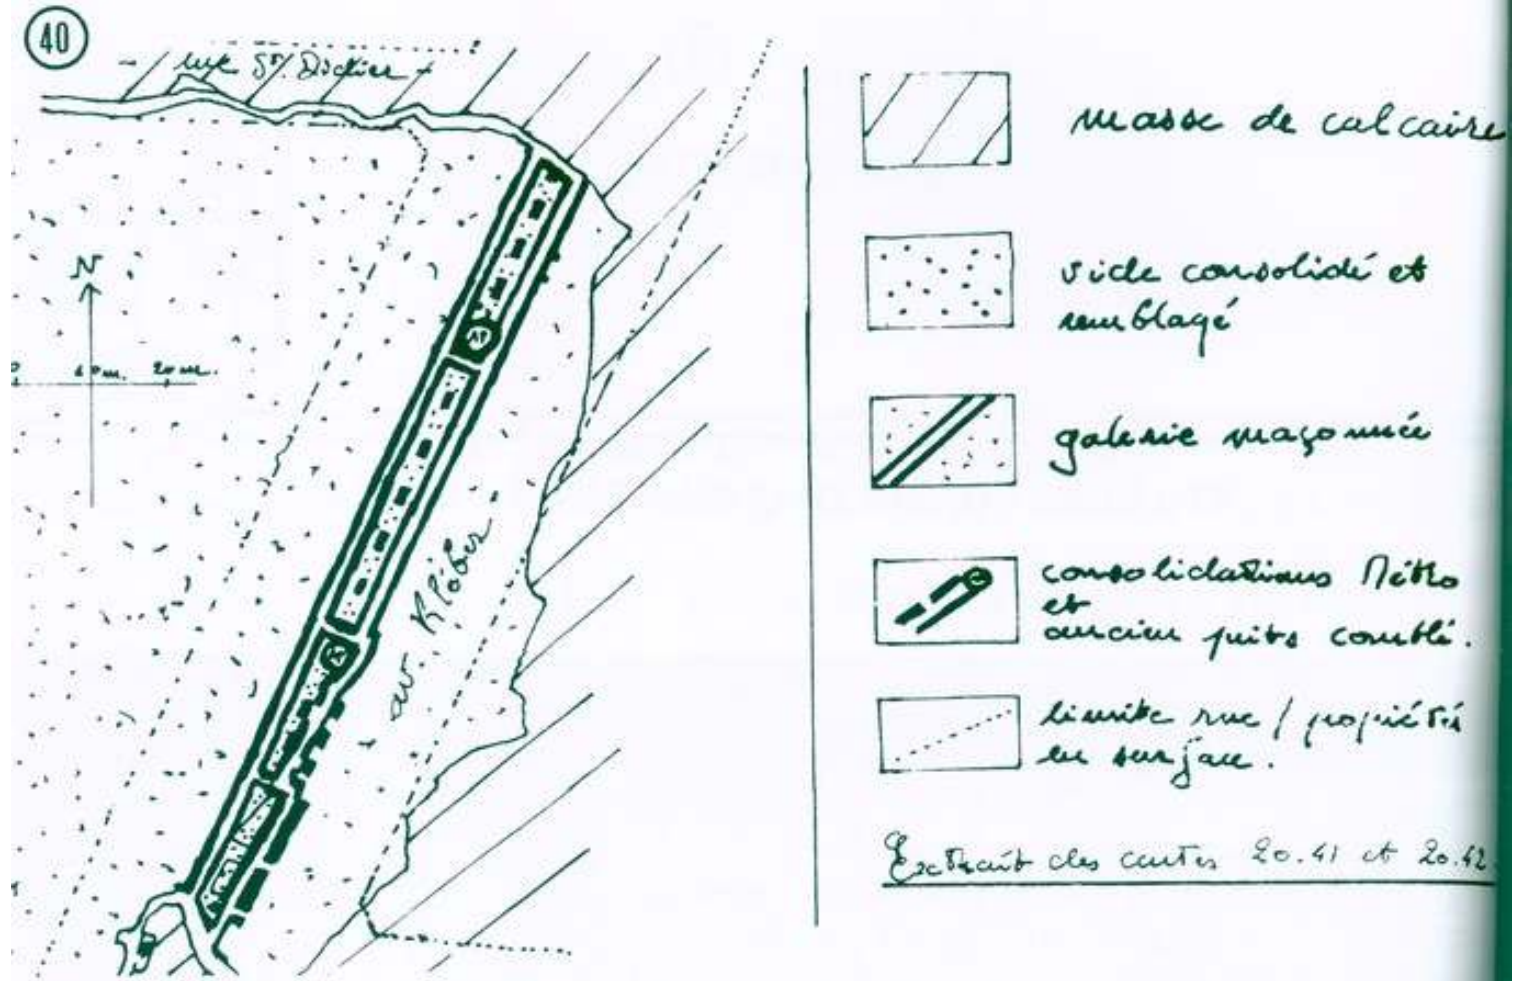 40
rue St. Didier
N
0 10m. 20m.
av. Kléber
masse de calcaire
vide consolidé et
remblayé
galerie maçonnée
consolidations Métro
et
ancien puits comblé.
limite rue / propriétés
en surface.
Extrait des cartes 20.41 et 20.42